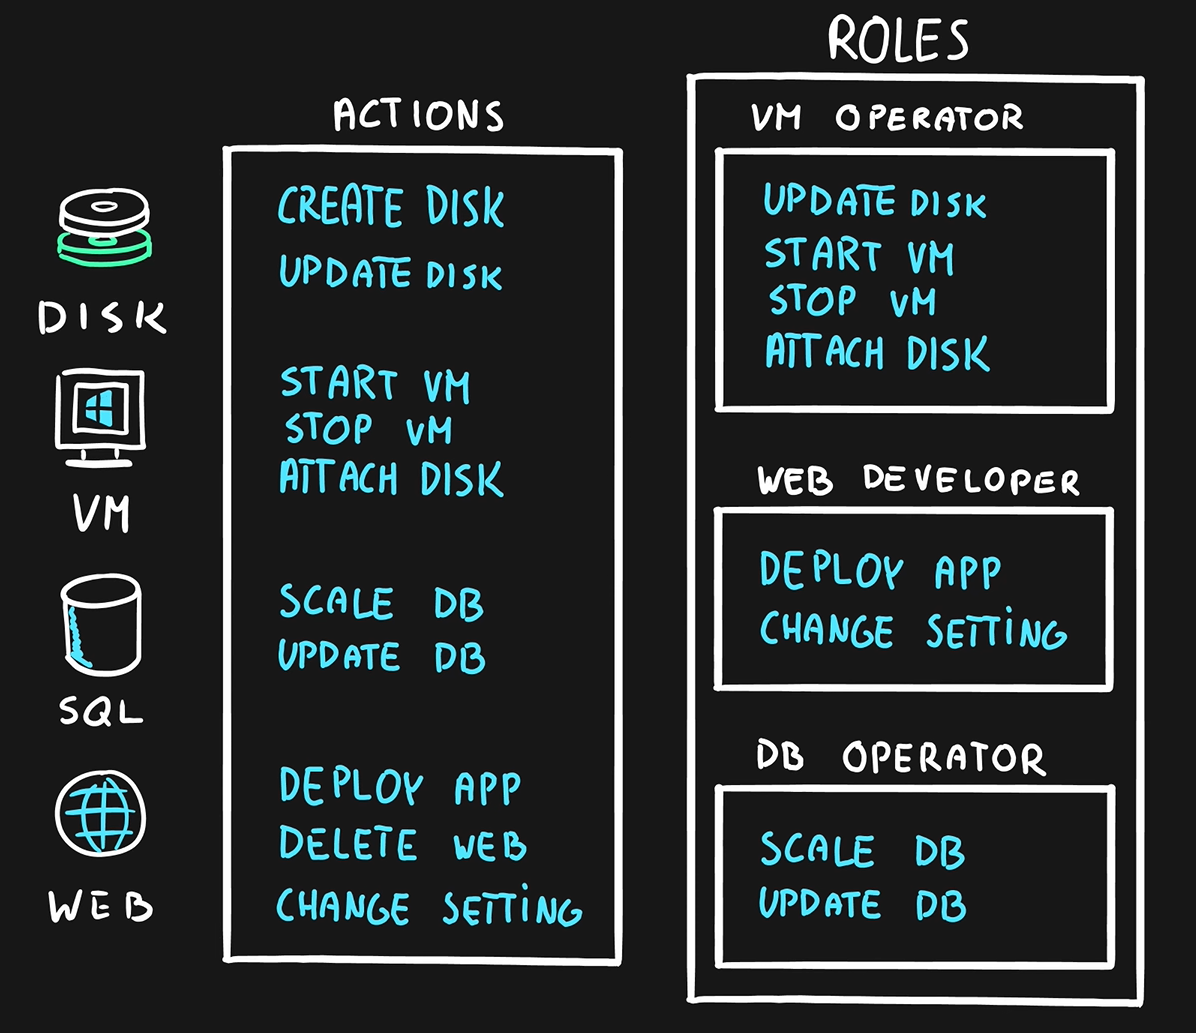 ROLES
ACTIONS
VM OPERATOR
CREATE DISK
UPDATE DISK
DISK
START VM
STOP VM
ATTACH DISK
VM
SCALE DB
UPDATE DB
SQL
DEPLOY APP
DELETE WEB
CHANGE SETTING
WEB
UPDATE DISK
START VM
STOP VM
ATTACH DISK
WEB DEVELOPER
DEPLOY APP
CHANGE SETTING
DB OPERATOR
SCALE DB
UPDATE DB